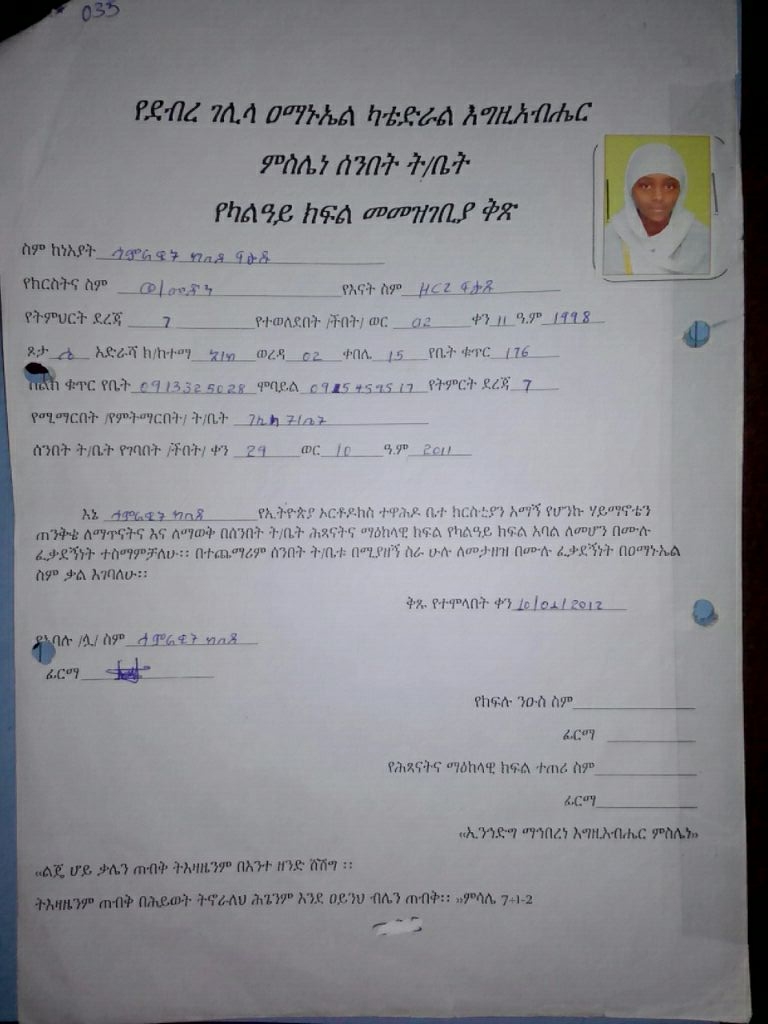 035
የደብረ ገሊላ ዐማኑኤል ካቴድራል እግዚአብሔር
ምስሌነ ሰንበት ት/ቤት
የካልዓይ ክፍል መመዝገቢያ ቅጽ
ስም ከነአያት
የክርስትና ስም የእናት ስም
የትምህርት ደረጃ 7 የተወለደበት /ችበት/ ወር 02 ቀን 11 ዓ.ም 1998
ጾታ ሴ አድራሻ ክ/ከተማ ወረዳ 02 ቀበሌ 15 የቤት ቁጥር 176
ስልክ ቁጥር የቤት 0913325028 ሞባይል የትምርት ደረጃ 7
የሚማርበት /የምትማርበት/ ት/ቤት
ሰንበት ት/ቤት የገባበት /ችበት/ ቀን 29 ወር 10 ዓ.ም 2011
እኔ የኢትዮጵያ ኦርቶዶክስ ተዋሕዶ ቤተ ክርስቲያን አማኝ የሆንኩ ሃይማኖቴን
ጠንቅቄ ለማጥናትና እና ለማወቅ በሰንበት ት/ቤት ሕጻናትና ማዕከላዊ ክፍል የካልዓይ ክፍል አባል ለመሆን በሙሉ
ፈቃደኝነት ተስማምቻለሁ፡፡ በተጨማሪም ሰንበት ት/ቤቱ በሚያዘኝ ስራ ሁሉ ለመታዘዝ በሙሉ ፈቃደኝነት በዐማኑኤል
ስም ቃል እገባለሁ፡፡
ቅጹ የተሞላበት ቀን
የአባሉ /ሏ/ ስም
ፊርማ
የክፍሉ ንዑስ ስም
ፊርማ
የሕጻናትና ማዕከላዊ ክፍል ተጠሪ ስም
ፊርማ
‹‹ኢንኅድግ ማኅበረነ እግዚአብሔር ምስሌነ››
‹‹ልጄ ሆይ ቃሌን ጠብቅ ትእዛዜንም በአንተ ዘንድ ሸሽግ ፡፡
ትእዛዜንም ጠብቅ በሕይወት ትኖራለህ ሕጌንም እንደ ዐይንህ ብሌን ጠብቅ፡፡ ››ምሳሌ 7÷1-2